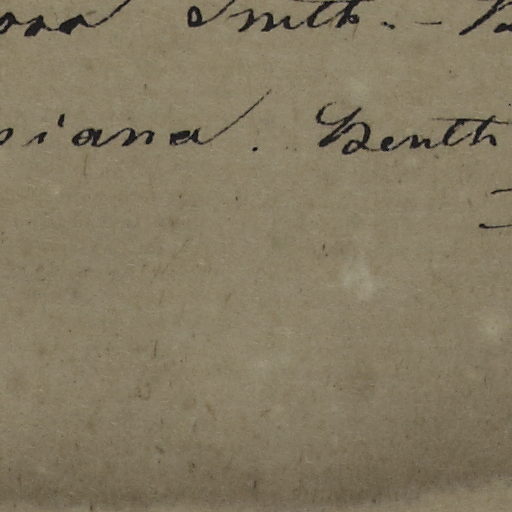 Smith. –
siana. Benth